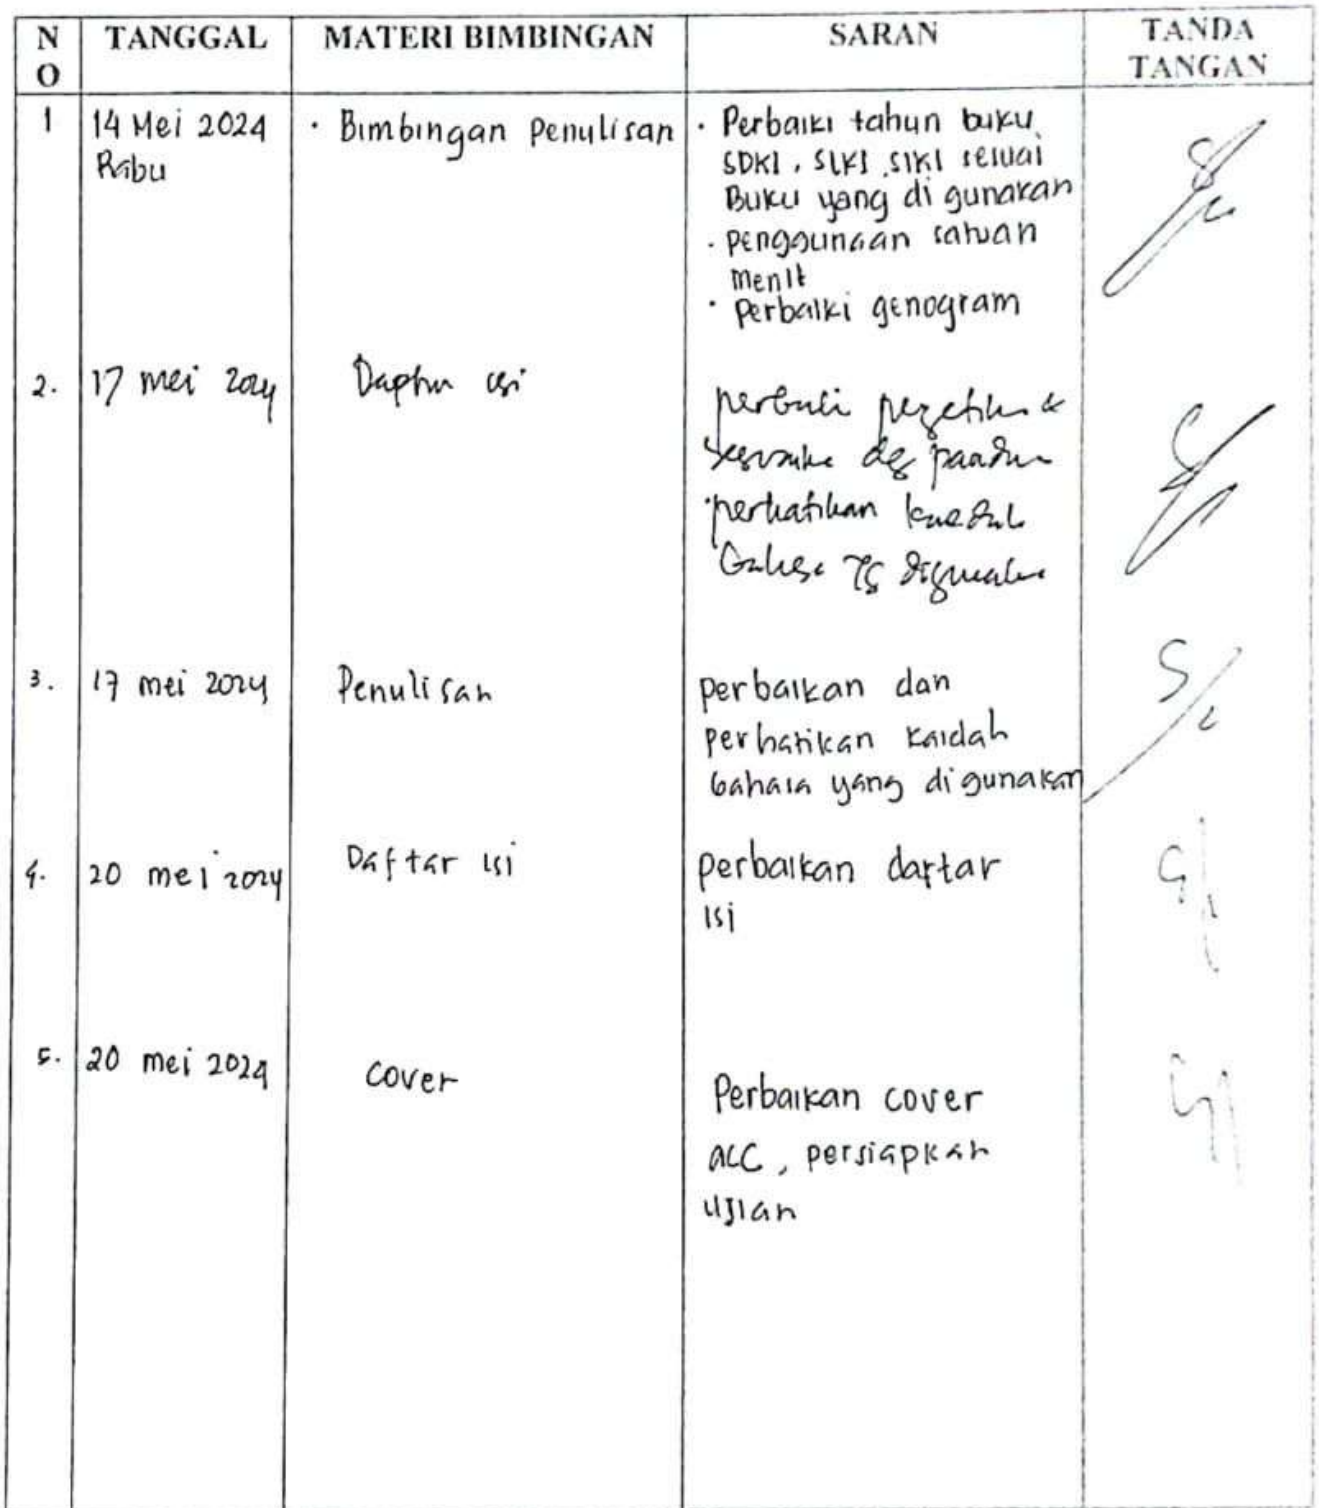 N
O
TANGGAL
MATERI BIMBINGAN
SARAN
TANDA
TANGAN
1
14 Mei 2024
Rabu
· Bimbingan Penulisan
· Perbaiki tahun buku
SDKI, SLKI, SIKI sesuai
Buku yang di gunakan
· penggunaan satuan
menit
· Perbaiki genogram
2.
17 mei 2024
Daptar isi
perhatikan
3.
17 mei 2024
Penulisan
perbaikan dan
perhatikan kaidah
bahasa yang di gunakan
4.
20 mei 2024
Daftar isi
perbaikan daftar
isi
5.
20 mei 2024
cover
Perbaikan cover
acc, persiapkan
ujian